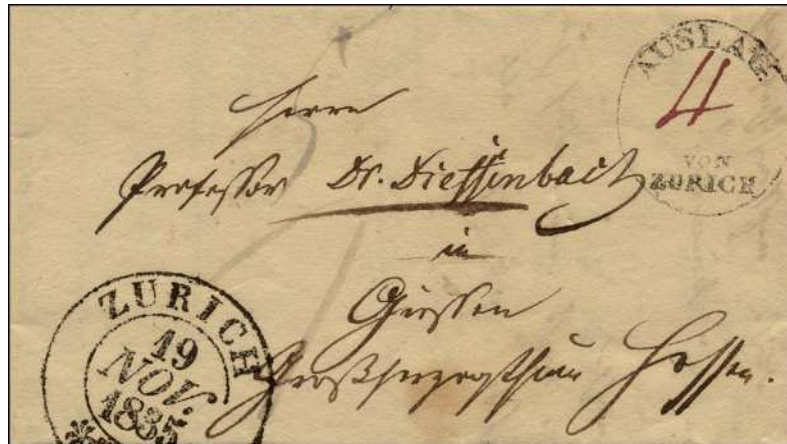 AUSLAG.
4
VON
ZÜRICH
Herrn
Professor Dr. Dieffenbach
in
Giessen
Großherzogthum Hessen.
ZURICH
19
NOV.
1835